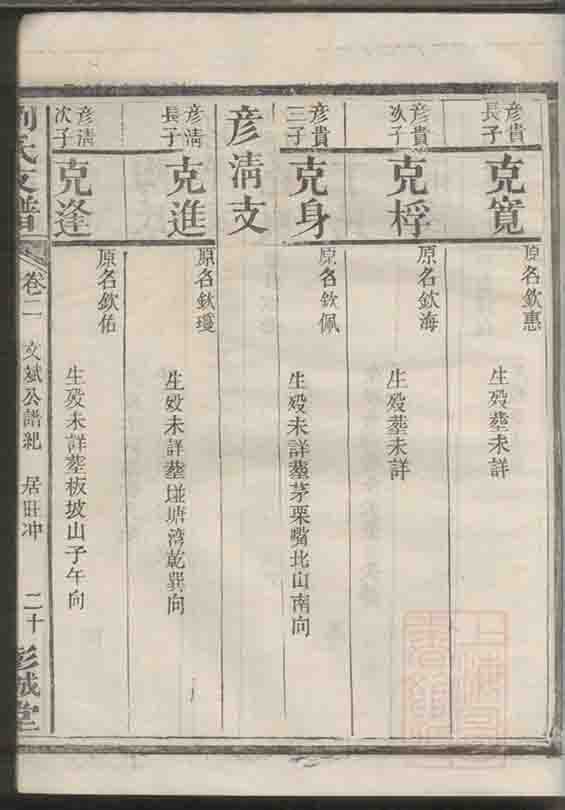 彦貴長子
克寬
原名欽惠
生殁塟未詳
彦貴次子
克桴
原名欽海
生殁塟未詳
彦貴三子
克身
原名欽佩
生殁未詳塟茅栗嘴北山南向
彦淸支
彦淸長子
克進
原名欽瓊
生殁未詳塟塘湾乾巽向
彦淸次子
克逢
原名欽佑
生殁未詳塟板坡山子午向
劉氏支譜
卷二
文斌公譜紀
居旺冲
二十
彭城堂